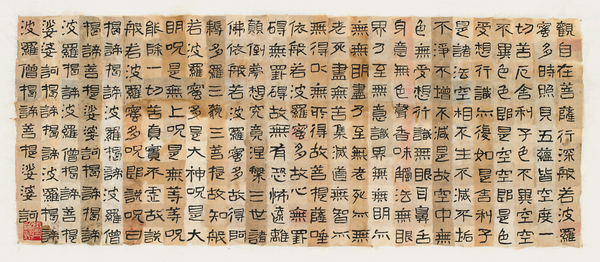 觀自在菩薩行深般若波羅
蜜多時照見五蘊皆空度一
切苦厄舍利子色不異空空
不異色色即是空空即是色
受想行識亦復如是舍利子
是諸法空相不生不滅不垢
不淨不增不減是故空中無
色無受想行識無眼耳鼻舌
身意無色聲香味觸法無眼
界乃至無意識界無無明亦
無無明盡乃至無老死亦無
老死盡無苦集滅道無智亦
無得以無所得故菩提薩埵
依般若波羅蜜多故心無罣
礙無罣礙故無有恐怖遠離
顛倒夢想究竟涅槃三世諸
佛依般若波羅蜜多故得阿
耨多羅三藐三菩提故知般
若波羅蜜多是大神呪是大
明呪是無上呪是無等等呪
能除一切苦真實不虛故說
般若波羅蜜多呪即說呪曰
揭諦揭諦波羅揭諦波羅僧
揭諦菩提娑婆訶揭諦揭諦
波羅揭諦波羅僧揭諦菩提
娑婆訶揭諦揭諦波羅揭諦
波羅僧揭諦菩提娑婆訶